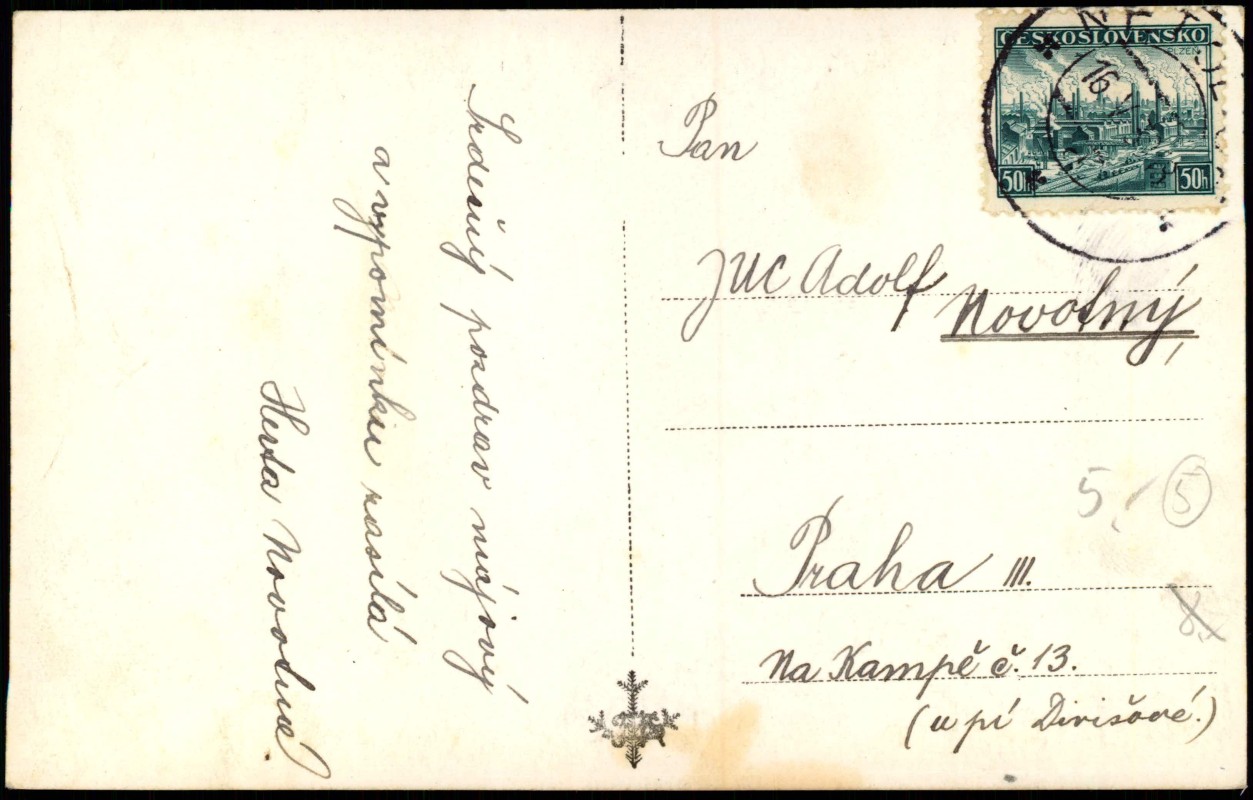 Srdečný pozdrav májový
a vzpomínku zasílá
Herta Novotná
ČESKOSLOVENSKO
PLZEŇ
50h 50h
16
Pan
JUC Adolf
Novotný,
5,- 5
Praha III.
8,-
Na Kampě č. 13.
(u pí Divišové.)